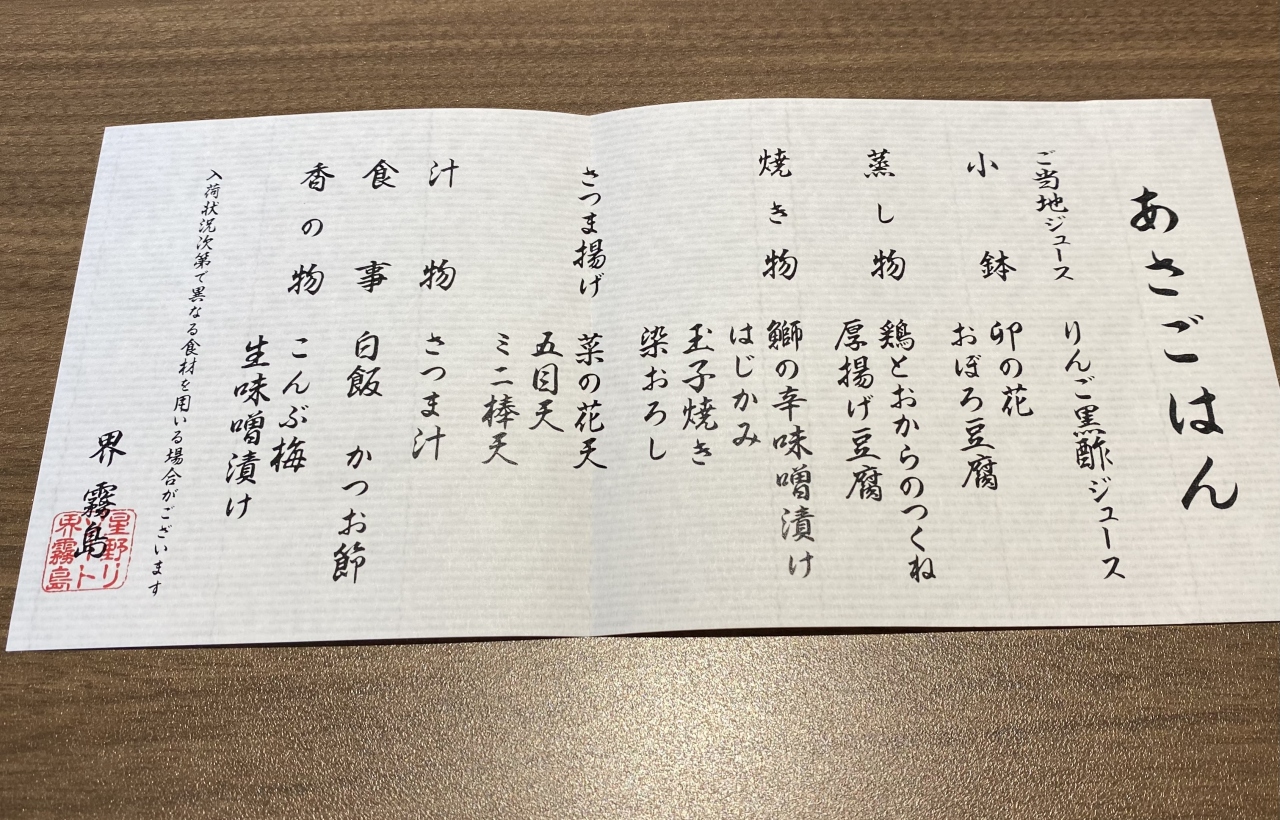 あさごはん
ご当地ジュース りんご黒酢ジュース
小鉢 卯の花
おぼろ豆腐
蒸し物 鶏とおからのつくね
厚揚げ豆腐
焼き物 鰤の辛味噌漬け
はじかみ
玉子焼き
染おろし
さつま揚げ 菜の花天
五目天
ミニ棒天
汁物 さつま汁
食事 白飯 かつお節
香の物 こんぶ梅
生味噌漬け
入荷状況次第で異なる食材を用いる場合がございます
界 霧島
星野リ
ート
界霧島